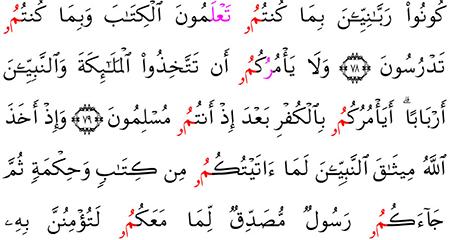 كُونُواْ رَبَّٰنِيِّـۧنَ بِمَا كُنتُمُۥ تَعۡلَمُونَ ٱلۡكِتَٰبَ وَبِمَا كُنتُمُۥ
تَدۡرُسُونَ ۝٧٨ وَلَا يَأۡمُرُكُمُۥ أَن تَتَّخِذُواْ ٱلۡمَلَٰٓئِكَةَ وَٱلنَّبِيِّـۧنَ
أَرۡبَابًاۗ أَيَأۡمُرُكُمُۥ بِٱلۡكُفۡرِ بَعۡدَ إِذۡ أَنتُمُۥ مُسۡلِمُونَ ۝٧٩ وَإِذۡ أَخَذَ
ٱللَّهُ مِيثَٰقَ ٱلنَّبِيِّـۧنَ لَمَا ءَاتَيۡتُكُمُۥ مِن كِتَٰبٖ وَحِكۡمَةٖ ثُمَّ
جَآءَكُمُۥ رَسُولٞ مُّصَدِّقٞ لِّمَا مَعَكُمُۥ لَتُؤۡمِنُنَّ بِهِۦ